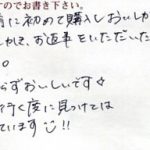 すのでお書き下さい。
前に初めて購入しおいしか
しかして、お返事をいただいた
。
らずおいしいです☆
行く度に見つけては
ています☺!!